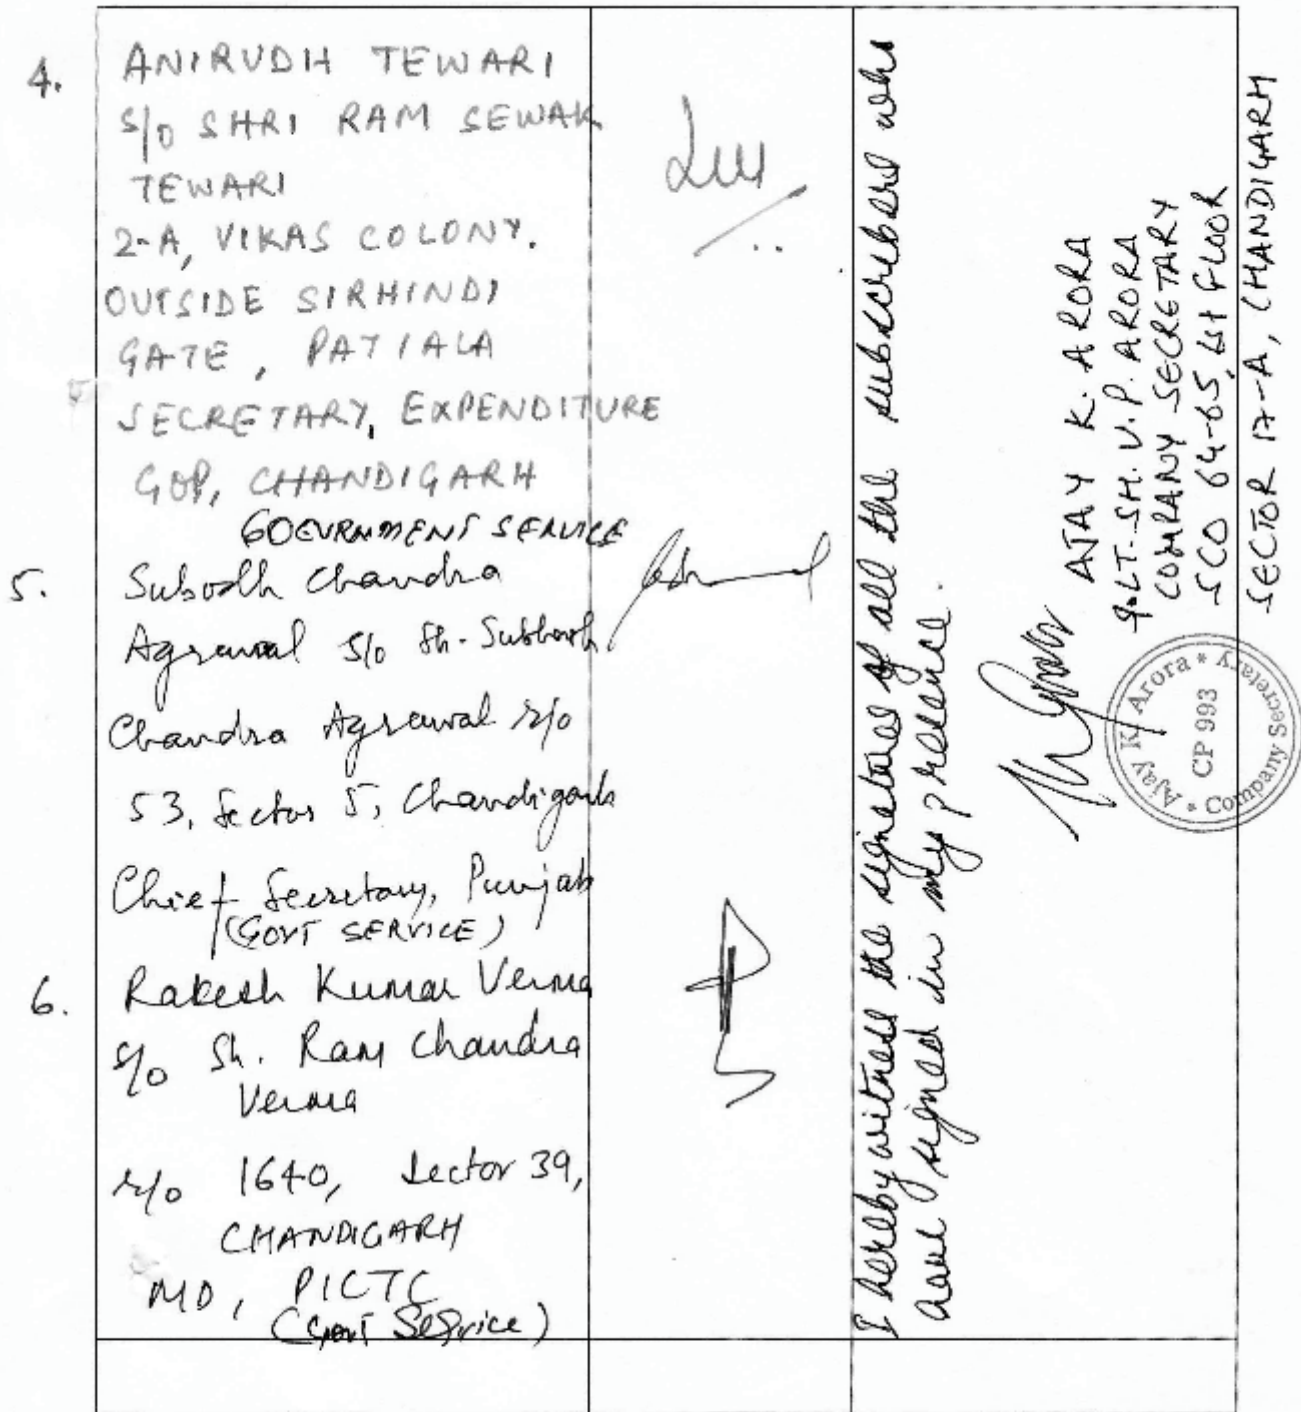 4.
ANIRUDH TEWARI
S/O SHRI RAM SEWAK
TEWARI
2-A, VIKAS COLONY.
OUTSIDE SIRHINDI
GATE, PATIALA
SECRETARY, EXPENDITURE
GOP, CHANDIGARH
GOVERNMENT SERVICE
5.
Subodh Chandra
Agrawal S/o Sh. Subhash
Chandra Agrawal r/o
53, Sector 5, Chandigarh
Chief Secretary, Punjab
(GOVT SERVICE)
6.
Rakesh Kumar Verma
S/o Sh. Ram Chandra
Verma
r/o 1640, Sector 39,
CHANDIGARH
MD, PICTC
(Govt Service)
I hereby witness the signatures of all the subscribers who
have signed in my presence.
AJAY K. ARORA
LT. SH. V.P. ARORA
COMPANY SECRETARY
SCO 64-65, 1st FLOOR
SECTOR 17-A, CHANDIGARH
Ajay K. Arora * Company Secretary *
CP 993